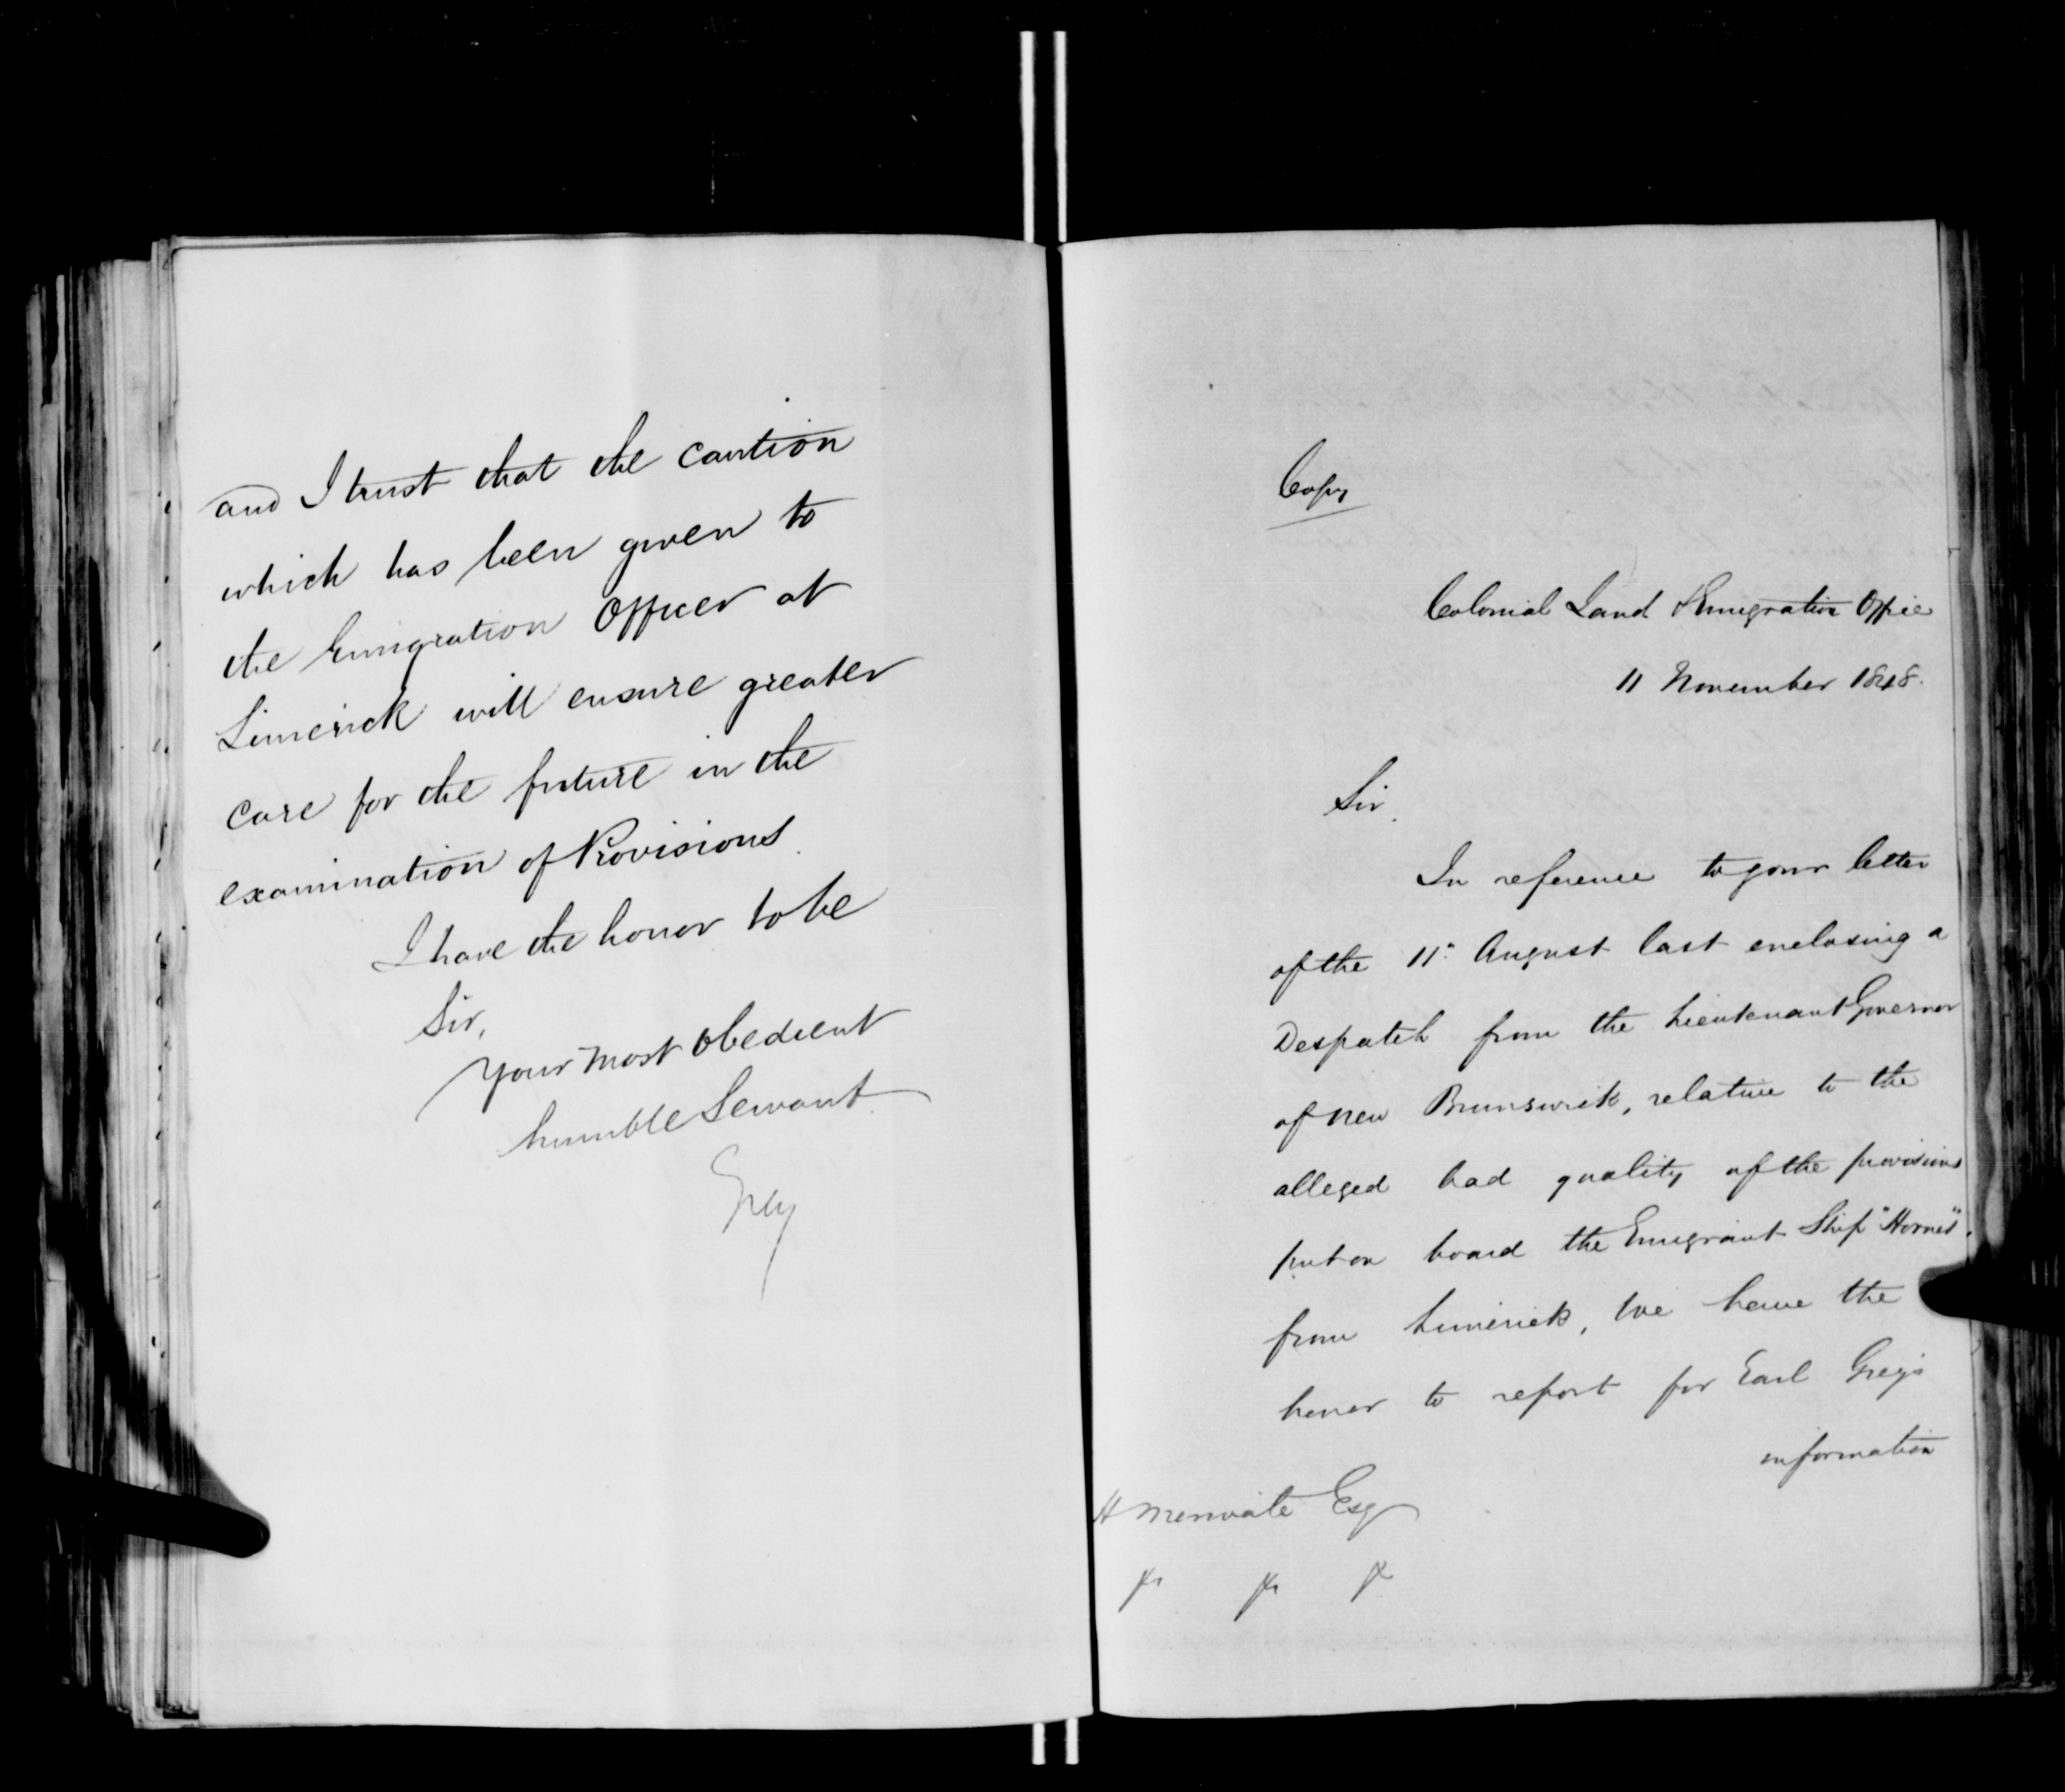 and I trust that the caution
which has been given to
the Emigration Officer at
Limerick will ensure greater
care for the future in the
examination of Provisions.
I have the honor to be
Sir,
Your most obedient
humble Servant.
Grey
Copy
Colonial Land & Emigration Office
11 November 1848.
Sir,
In reference to your letter
of the 11th August last enclosing a
Despatch from the Lieutenant Governor
of New Brunswick, relative to the
alleged bad quality of the provisions
put on board the Emigrant Ship "Hornet",
from Limerick, We have the
honor to report for Earl Grey's
information
H Merivale Esq